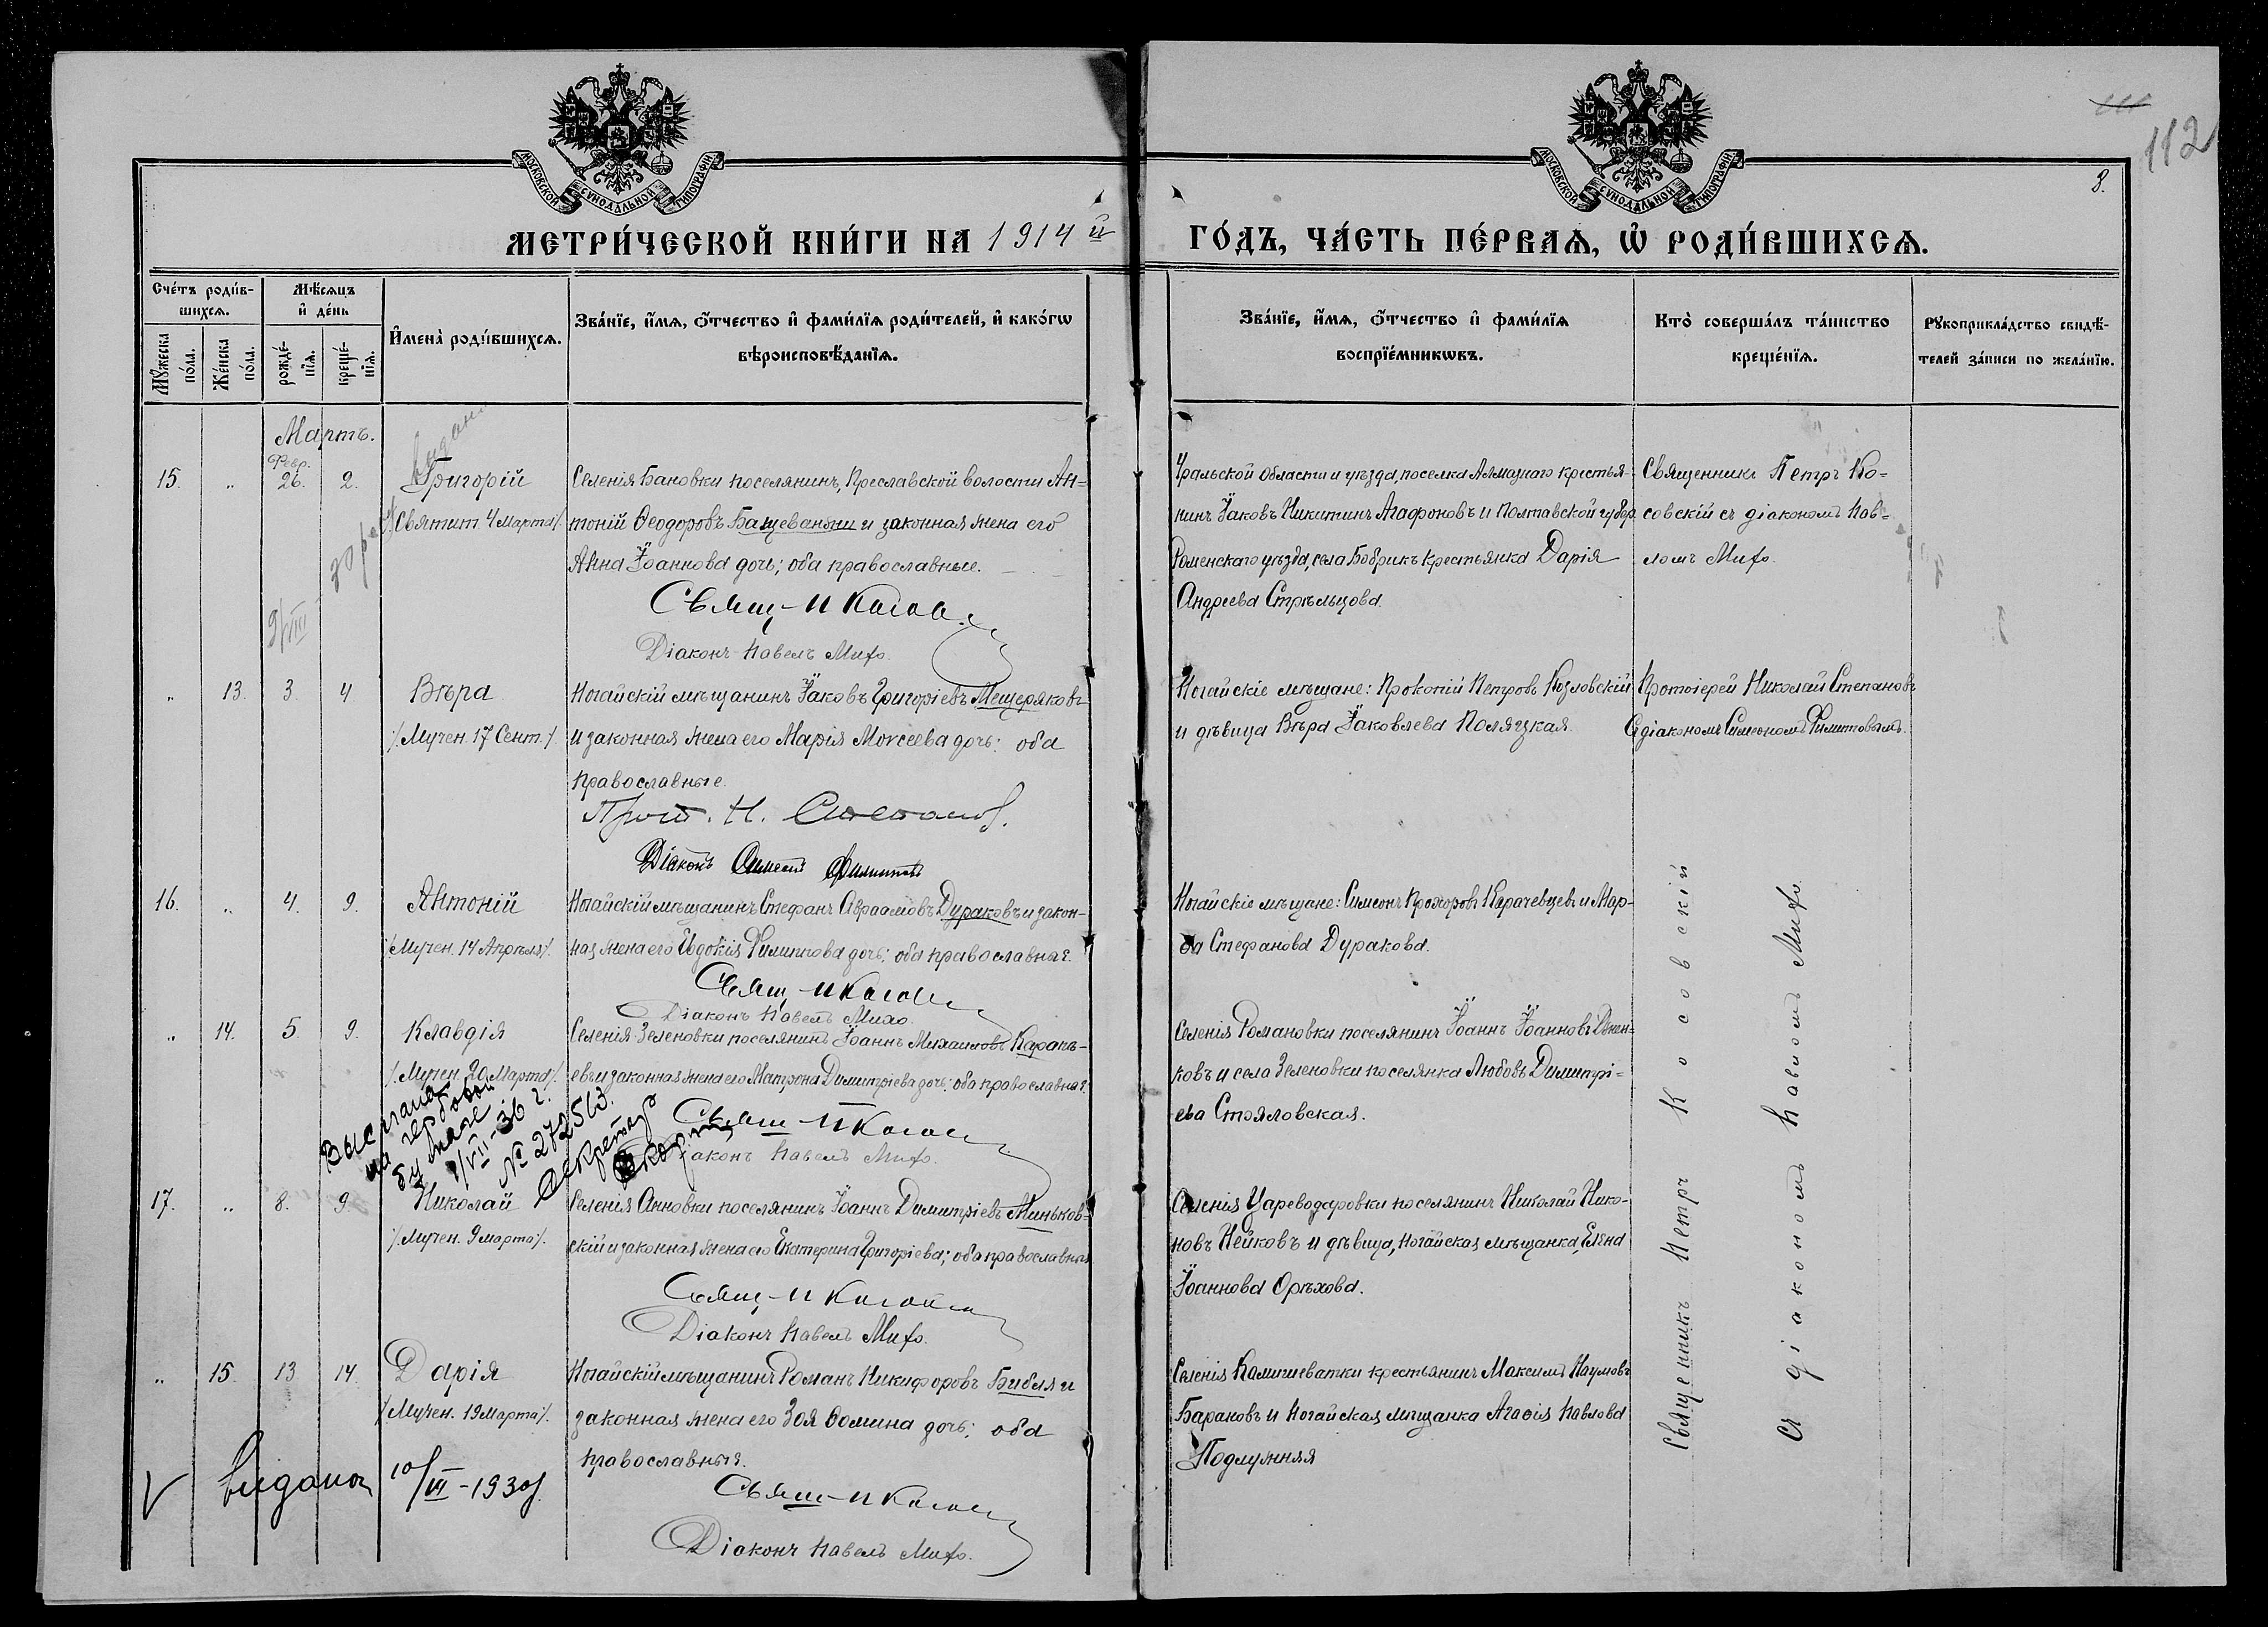 МОСКОВСКОЙ СѴНОДАЛЬНОЙ ТИПОГРАФІИ
МОСКОВСКОЙ СѴНОДАЛЬНОЙ ТИПОГРАФІИ
112
8.
МЕТРИ́ЧЕСКОЙ КНИ́ГИ НА 1914 й
ГО́ДЪ, ЧА́СТЬ ПЕ́РВАѦ, Ѡ҆ РОДИ́ВШИХСѦ.
Сче́тъ роди́в-
шихсѧ.
Мꙋ́жеска
по́ла.
Же́нска
по́ла.
Мѣ́сѧцъ
и҆ де́нь
рожде́-
нїѧ.
креще́-
нїѧ.
И҆мена̀ роди́вшихсѧ.
Зва́нїе, и҆́мѧ, ѻ҆́тчество и҆ фами́лїѧ роди́телей, и҆ како́гѡ
вѣроисповѣ́данїѧ.
Зва́нїе, и҆́мѧ, ѻ҆́тчество и҆ фами́лїѧ
воспрїе́мникѡвъ.
Кто̀ соверша́лъ та́инство
креще́нїѧ.
Рꙋкоприкла́дство свидѣ́-
телей за́писи по жела́нїю.
Мартъ.
Февр.
15. „ 26. 2. Григорій
/Святит 4 Марта/.
Селенія Бановки поселянинъ, Преславской волости Ан-
тоній Ѳеодоровъ Бацеванъи и законная жена его
Анна Іоаннова дочь; оба православные.
Діаконъ Павелъ Михо.
Уральской области и уѣзда, поселка Алмазнаго крестья-
нинъ Іаковъ Никитинъ Агафоновъ и Полтавской губер.
Роменскаго уѣзда, села Бобрикъ крестьянка Дарія
Андреева Стрѣльцова.
Священникъ Петръ Ко-
совскій съ діакономъ Пав-
ломъ Михо.
9/VIII
„ 13. 3. 4. Вѣра
/Мучен. 17 Сент./
Ногайскій мѣщанинъ Іаковъ Григоріевъ Мещеряковъ
и законная жена его Марія Моисеева дочь: оба
православные.
Прот. Н. Степанов.
Діаконъ Симеонъ Филиповъ
Ногайскіе мѣщане: Прокопій Петровъ Козловскій
и дѣвица Вѣра Іаковлева Поляцкая.
Протоіерей Николай Степановъ
съ діакономъ Симеономъ Филиповымъ.
16. „ 4. 9. Антоній
/Мучен. 14 Апрѣля/.
Ногайскій мѣщанинъ Стефанъ Авраамовъ Дураковъ и закон-
ная жена его Евдокія Филиппова дочь; оба православные.
Діаконъ Павелъ Михо.
Ногайскіе мѣщане: Симеонъ Прохоровъ Карачевцевъ и Мар-
ѳа Стефанова Дуракова.
„ 14. 5. 9. Клавдія
/Мучен. 20 Марта/.
Селенія Зеленовки поселянинъ Іоаннъ Михаиловъ Карапѣ-
евъ и законная жена его Матрона Димитріева дочь; оба православные.
Діаконъ Павелъ Михо.
Селенія Романовки поселянинъ Іоаннъ Іоанновъ
ковъ и села Зеленовки поселянка Любовь Димитрі-
ева Стояловская.
Выслана
на гербовой
бумаге
1/VII-36 г.
№ 272513.
Секретар
17. „ 8. 9. Николай
/Мучен. 9 марта/.
Селенія Анновки поселянинъ Іоаннъ Димитріевъ Миньков-
скій и законная жена его Екатерина Григоріева; оба православные
Діаконъ Павелъ Михо.
Селенія Цареводаровки поселянинъ Николай Нико-
новъ Пейковъ и дѣвица, Ногайская мѣщанка, Елена
Іоаннова Орѣхова.
„ 15. 13. 14. Дарія
/Мучен. 19 Марта/.
Ногайскій мѣщанинъ Романъ Никифоровъ Библя и
законная жена его Зоя Ѳомина дочь; оба
православные.
Діаконъ Павелъ Михо.
Селенія Камышеватки крестьянинъ Максимъ Наумовъ
Барановъ и Ногайская мѣщанка Агаѳія Павлова
Подлужняя
Священникъ Петръ Косовскій
съ діакономъ Павломъ Михо.
V видана 10/III-1930 г.